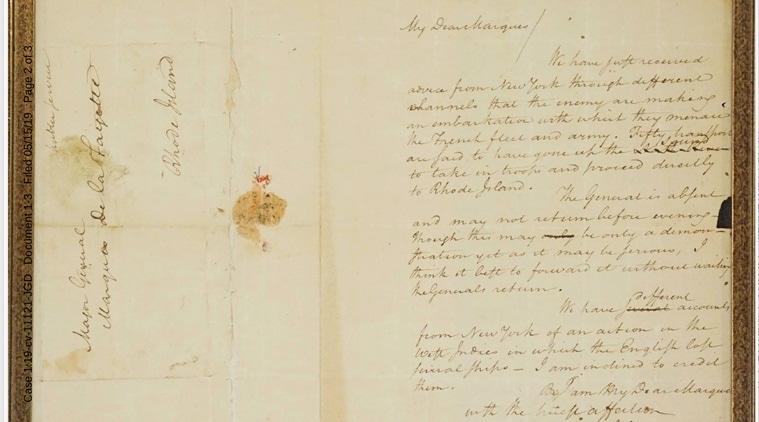 Case 1:19-cv-11121-JGD Document 1-3 Filed 05/15/19 Page 2 of 3
Major General
Marquis De la Fayette
Rhode Island
My Dear Marquis
We have just received
advice from New York through different
channels that the enemy are making
an embarkation with which they menace
the French fleet and army. Fifty transports
are said to have gone up the Sound
to take in troops and proceed directly
to Rhode Island.
The General is absent
and may not return before evening-
Though this may only be only a demon-
stration yet as it may be serious, I
think it best to forward it without waiting
the Generals return.
different
We have several accounts
from New York of an action in the
West Indies in which the English lost
several ships - I am inclined to credit
them.
I am My Dear Marquis
with the truest affection